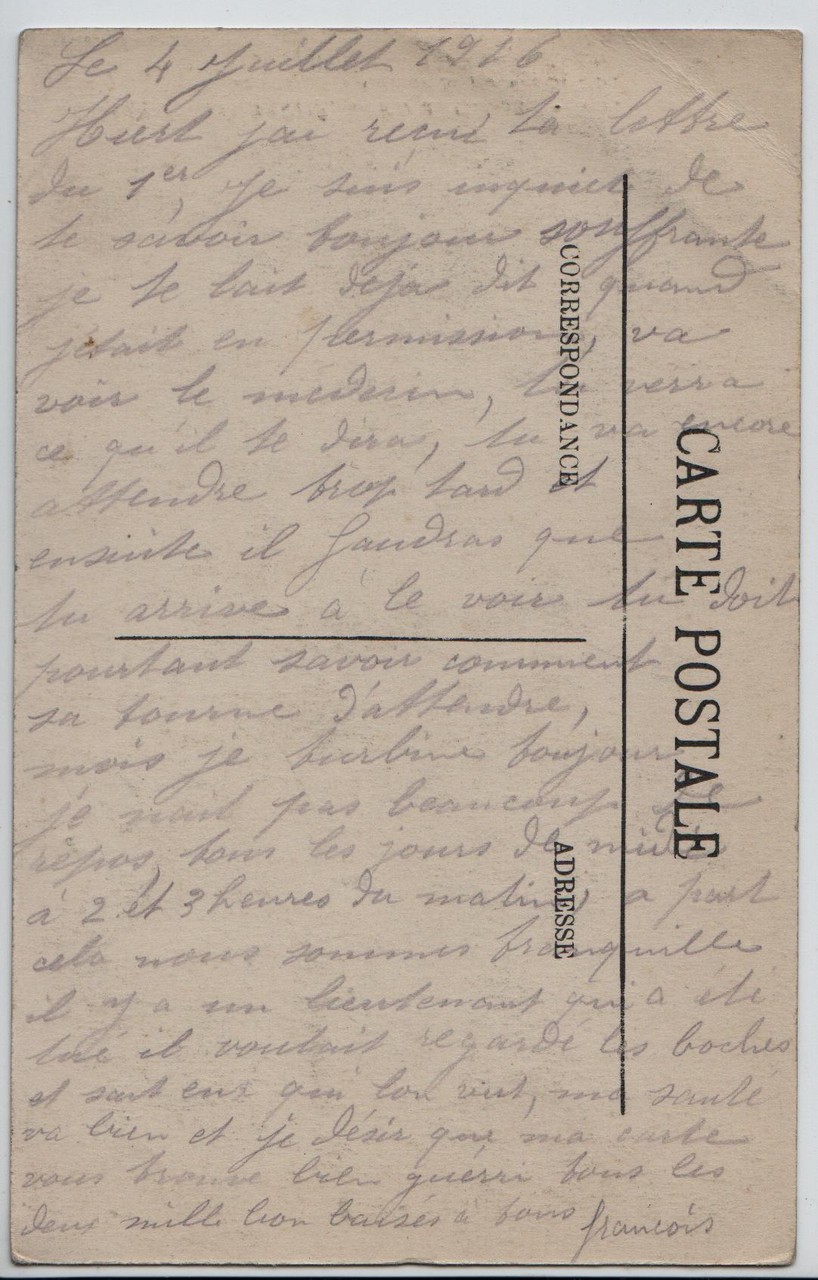 Le 4 Juillet 1916
Hiert j'ai reçue ta lettre
du 1er, je suis inquiet de
te savoir toujour souffrante
je te lait deja dit quand
j'etait en permission, va
voir le medecin, tu verra
ce qu'il te dira, tu va encore
attendre trop tard et
ensuite il faudras que
tu arrive à le voir tu doit
pourtant savoir comment
sa tourne d'attendre,
mois je turbine toujour
je nait pas beaucoup de
repos, tous les jours de
à 2 et 3 heures du matin, a part
cela nous sommes tranquille
il y a un lieutenant qui a été
tué il voulait regardé les boches
et sont eux qui lon vut, ma santé
va bien et je désir que ma carte
vous trouve bien guérri tous les
deux mille bon baisés à tous françois
CORRESPONDANCE
ADRESSE
CARTE POSTALE